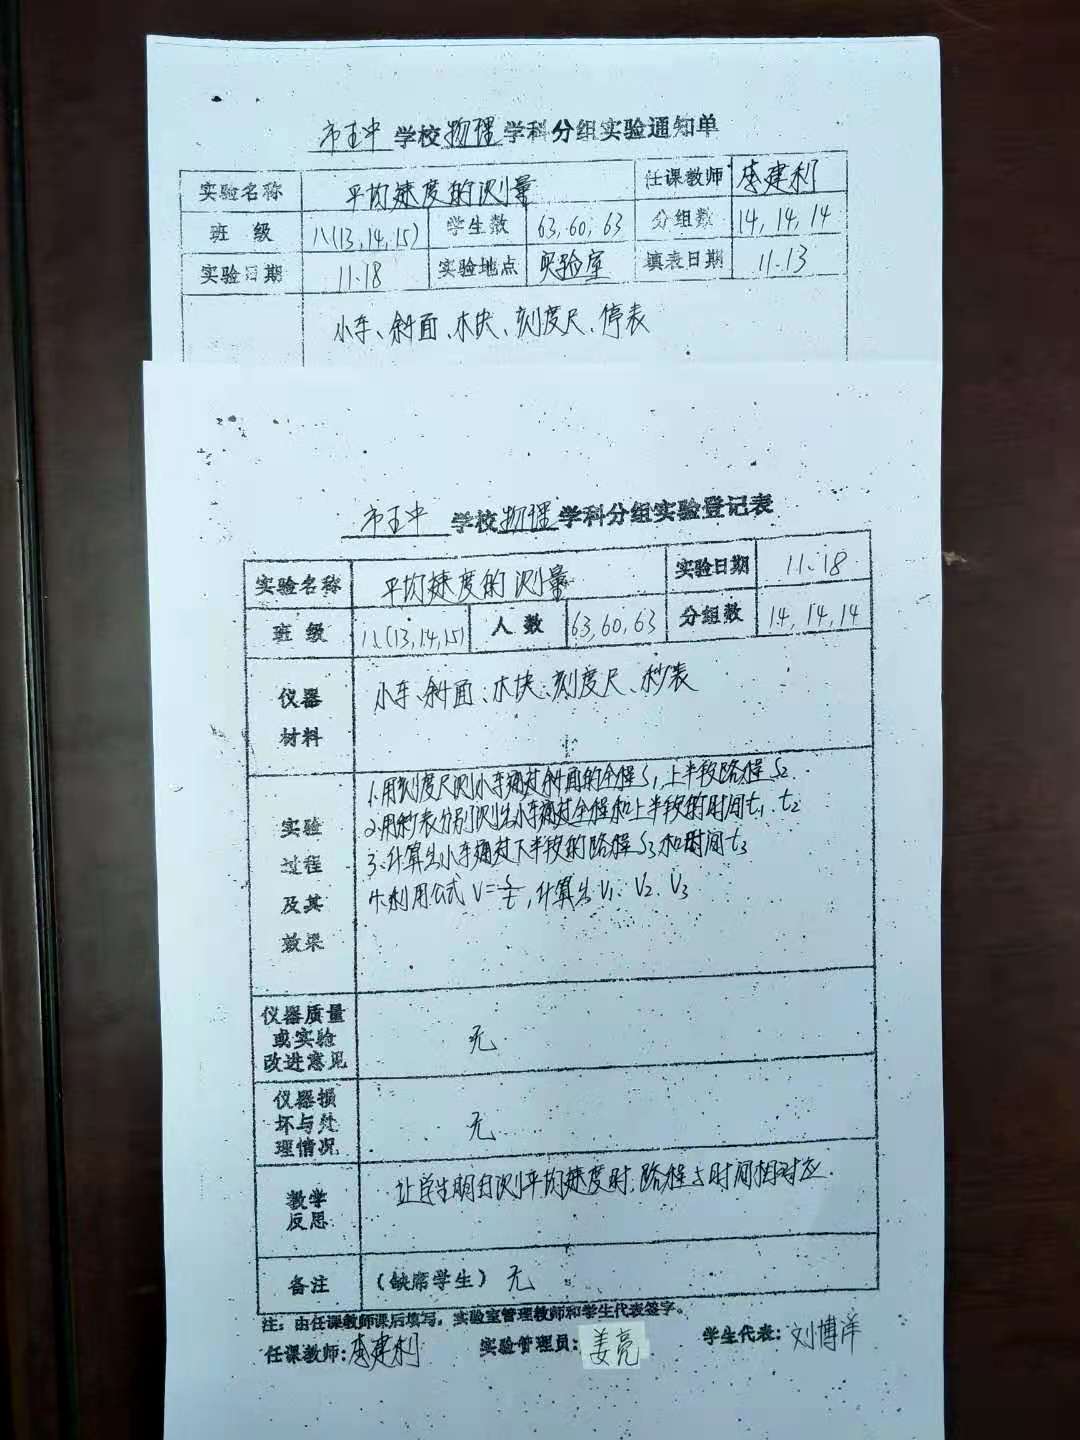 市五中 学校 物理 学科分组实验通知单
实验名称 平均速度的测量 任课教师 李建利
班 级 八(13,14,15) 学生数 63,60,63 分组数 14,14,14
实验日期 11.18 实验地点 实验室 填表日期 11.13
小车、斜面、木块、刻度尺、停表
市五中 学校 物理 学科分组实验登记表
实验名称 平均速度的测量 实验日期 11.18
班 级 八(13,14,15) 人 数 63,60,63 分组数 14,14,14
仪器
材料
小车、斜面、木块、刻度尺、秒表
实验
过程
及其
效果
1.用刻度尺测小车通过斜面的全程S₁,上半段路程S₂
2.用秒表分别测出小车通过全程和上半段的时间t₁、t₂
3、计算出小车通过下半段的路程S₃和时间t₃
4.利用公式V=s/t,计算出V₁、V₂、V₃
仪器质量
或实验
改进意见
无
仪器损
坏与处
理情况
无
教学
反思
让学生明白测平均速度时,路程与时间相对应
备注 (缺席学生) 无
注:由任课教师课后填写,实验室管理教师和学生代表签字。
任课教师:李建利 实验管理员:姜亮 学生代表:刘博洋